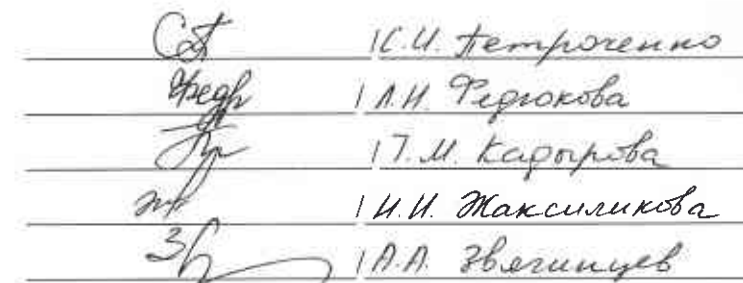 /С.И. Петроченко
/Л.Н. Федюкова
/Т.М. Кадырова
/И.И. Жаксиликова
/А.А. Звягинцев